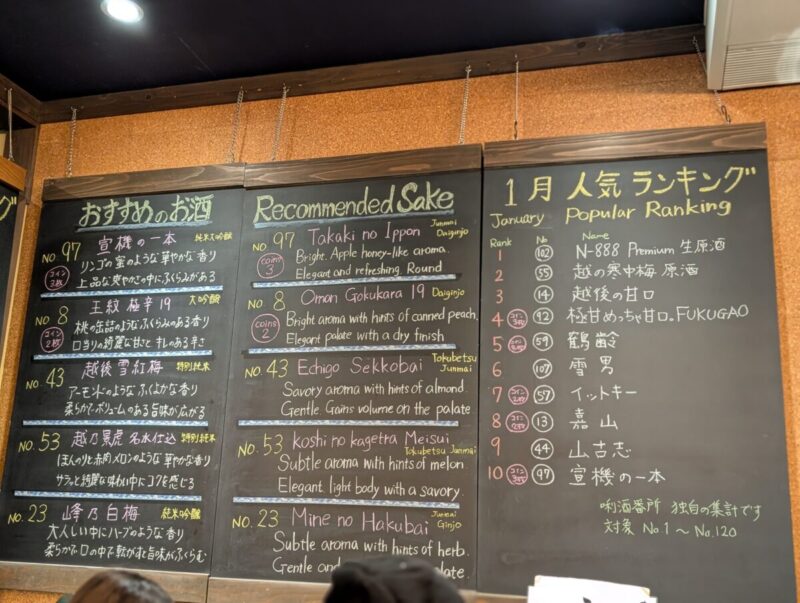 おすすめのお酒
No. 97 宣機の一本 純米大吟醸
コイン3枚
リンゴの蜜のような華やかな香り
上品な爽やかさの中にふくらみがある
No 8 王紋 極辛19 大吟醸
コイン2枚
桃の缶詰のようなふくらみのある香り
口当りの綺麗な甘さとキレのある辛さ
No. 43 越後雪紅梅 特別純米
アーモンドのようなふくよかな香り
柔らかでボリュームのある旨味が広がる
No. 53 越乃景虎 名水仕込 特別純米
ほんのりと赤肉メロンのような華やかな香り
サラッと綺麗な味わい中にコクを感じる
No. 23 峰乃白梅 純米吟醸
大人しい中にハーブのような香り
柔らかで口の中で転がすと旨味がふくらむ
Recommended Sake
No. 97 Takaki no Ippon Junmai Daiginjo
coins 3
Bright. Apple honey-like aroma.
Elegant and refreshing. Round
No 8 Omon Gokukara 19 Daiginjo
coins 2
Bright aroma with hints of canned peach.
Elegant palate with a dry finish
No. 43 Echigo Sekkobai Tokubetsu Junmai
Savory aroma with hints of almond.
Gentle Gains volume on the palate
No. 53 koshi no kagetra Meisui Tokubetsu Junmai
Subtle aroma with hints of melon.
Elegant light body with a savory.
No. 23 Mine no Hakubai Junmai Ginjo
Subtle aroma with hints of herb.
Gentle and palate.
1月 人気ランキング
January Popular Ranking
Rank No Name
1 102 N-888 Premium 生原酒
2 55 越の寒中梅 原酒
3 14 越後の甘口
4 コイン3枚 92 極甘めっちゃ甘口。FUKUGAO
5 59 鶴齢
6 107 雪男
7 コイン2枚 57 イットキー
8 コイン2枚 13 嘉山
9 44 山古志
10 コイン3枚 97 宣機の一本
唎酒番所 独自の集計です
対象 No.1〜No.120